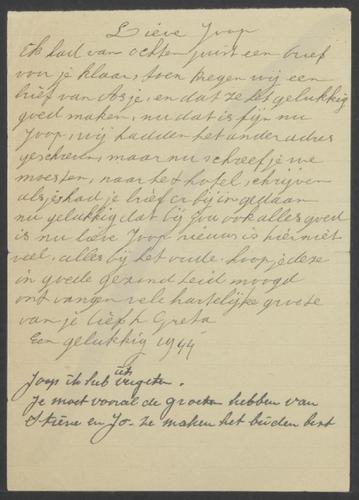 Lieve Joop
Ik had van ochten juist een brief
voor je klaar, toen kregen wij een
brief van Asje, en dat ze het gelukkig
goed maken, nu dat is fijn nu
Joop, wij hadden het ander adres
geschreven, maar nu schreef je we
moesten, naar het hotel, schrijven
als je had je brief er bij in gedaan
nu gelukkig dat bij Jou ook alles goed
is nu lieve Joop nieuws is hier niet
veel, alles bij het oude. hoop je deze
in goede gezond heid moogd
ont vangen vele hartelijke groete
van je liefh Greta
Een gelukkig 1944
Joop ik heb iets vergeten.
Je moet vooral de groeten hebben van
Stiene en Jo. ze maken het beiden best